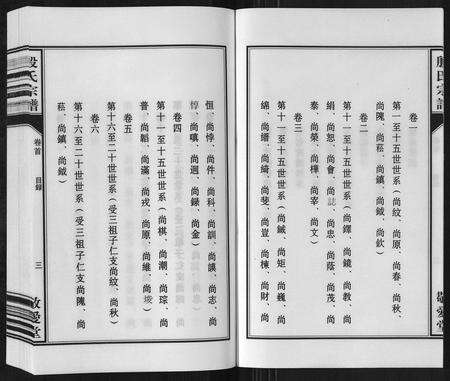 殷氏宗譜
卷一
第一至十五世世系（尚紋、尚原、尚春、尚秋、
尚隗、尚菘、尚鎮、尚鉞、尚欽）
卷二
第十一至十五世世系（尚鐸、尚鏡、尚教、尚
絹、尚恕、尚會、尚誌、尚忠、尚蔭、尚茂、尚
泰、尚榮、尚樺、尚宰、尚文）
卷三
第十一至十五世世系（尚鏚、尚矩、尚巍、尚
綿、尚縉、尚綺、尚斐、尚豈、尚棟、尚財、尚
敬愛堂
殷氏宗譜
卷首
目録
三
恒、尚悖、尚件、尚科、尚訓、尚謨、尚志、尚
惇、尚嗔、尚迥、尚録、尚金）
卷四
第十一至十五世世系（尚棋、尚潮、尚琮、尚
普、尚韜、尚滿、尚戎、尚原、尚維、尚埈）
卷五
第十六至二十世世系（受三祖子仁支尚紋、尚秋）
卷六
第十六至二十世世系（受三祖子仁支尚隗、尚
菘、尚鎮、尚鉞）
敬愛堂